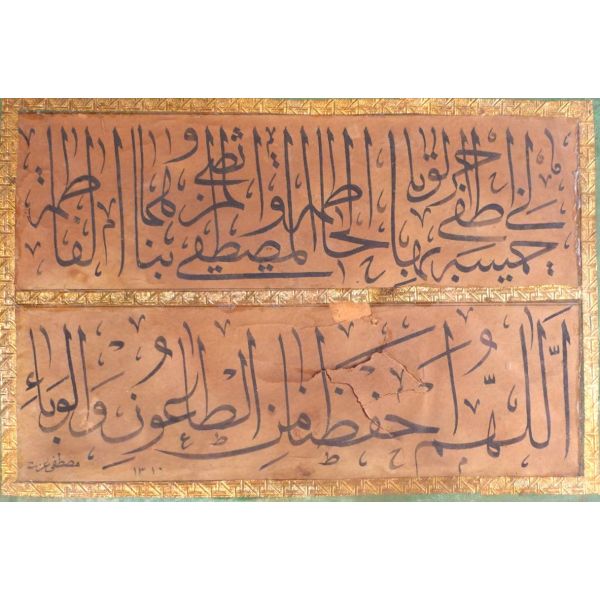 لي خمسة أطفي بها حر الوبا الحاطمة
المصطفى والمرتضى وابناهما الفاطمة
اَللّٰهُمَّ احْفَظْنَا مِنَ الطَّاعُونِ وَالْوَبَاءِ
مصطفى عزت ١٣١٠